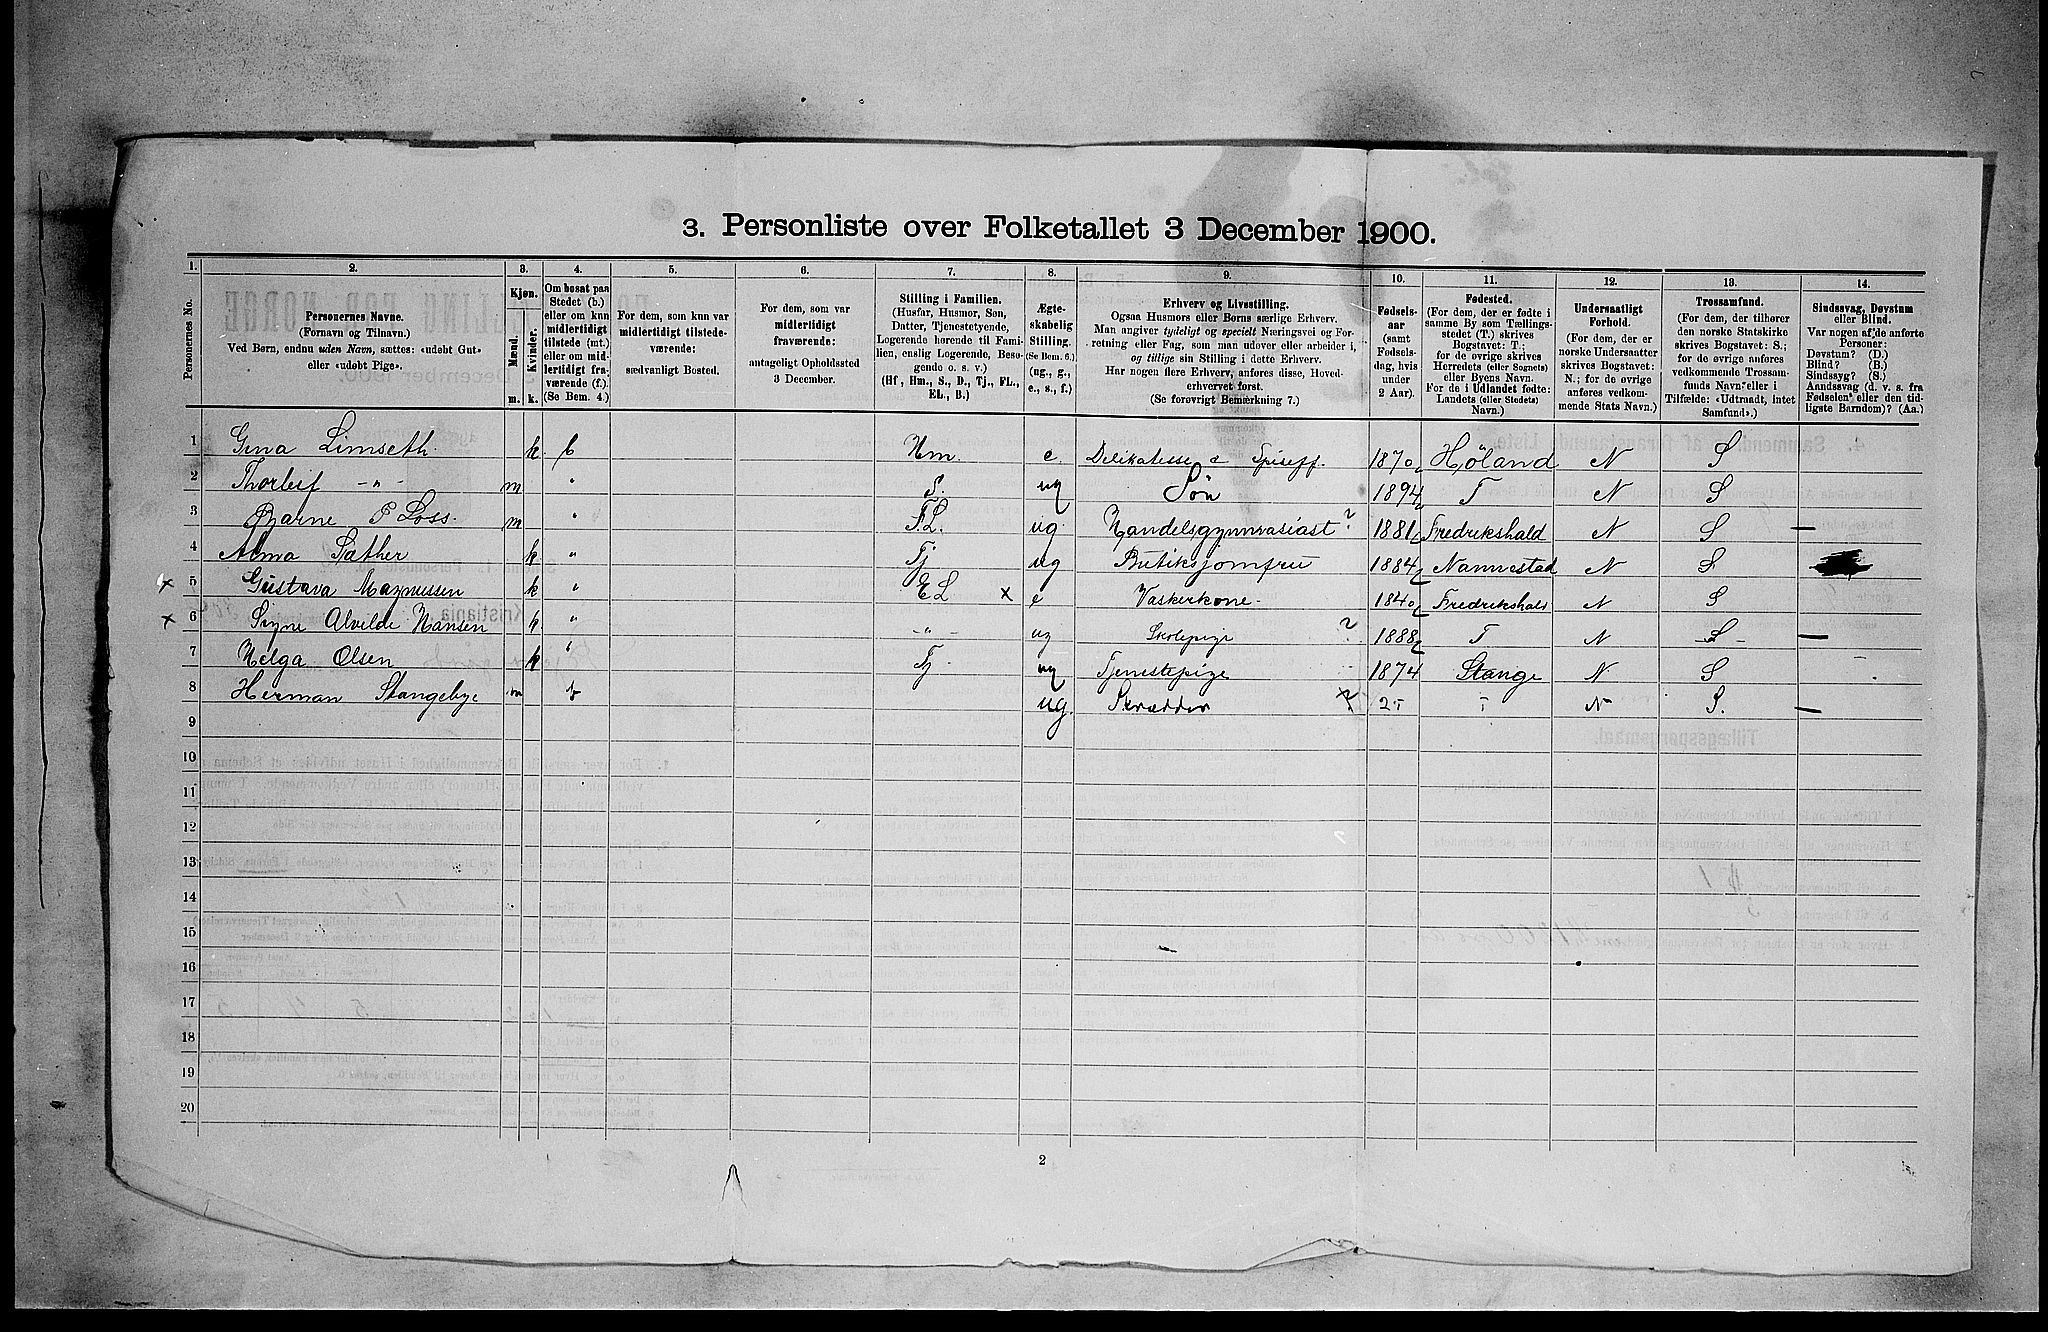 3. Personliste over Folketallet 3 December 1900.
1. 2. 3. 4. 5. 6. 7. 8. 9. 10. 11. 12. 13. 14.
Personernes No.
Personernes Navne.
(Fornavn og Tilnavn.)
Ved Børn, endnu uden Navn, sættes: «udøbt Gut»
eller «udøbt Pige».
Kjøn.
Mænd.
Kvinder.
m. k.
Om bosat paa
Stedet (b.)
eller om kun
midlertidigt
tilstede (mt.)
eller om mid-
lertidigt fra-
værende (f.).
(Se Bem. 4.)
For dem, som kun var
midlertidigt tilstede-
værende:
sædvanligt Bosted.
For dem, som var
midlertidigt
fraværende:
antageligt Opholdssted
3 December.
Stilling i Familien.
(Husfar, Husmor, Søn,
Datter, Tjenestetyende,
Logerende hørende til Fami-
lien, enslig Logerende, Besø-
gende o. s. v.)
(Hf, Hm., S., D., Tj., FL.,
EL., B.)
Ægte-
skabelig
Stilling.
(Se Bem. 6.)
(ug., g.,
e., s., f.)
Erhverv og Livsstilling.
Ogsaa Husmors eller Børns særlige Erhverv.
Man angiver tydeligt og specielt Næringsvei og For-
retning eller Fag, som man udøver eller arbeider i,
og tillige sin Stilling i dette Erhverv.
Har nogen flere Erhverv, anføres disse, Hoved-
erhvervet først.
(Se forøvrigt Bemærkning 7.)
Fødsels-
aar
(samt
Fødsels-
dag, hvis
under
2 Aar).
Fødested.
(For dem, der er fødte i
samme By som Tællings-
stedet (T.) skrives
Bogstavet: T.;
for de øvrige skrives
Herredets (eller Sognets)
eller Byens Navn.
For de i Udlandet fødte:
Landets (eller Stedets)
Navn.)
Undersaatligt
Forhold.
(For dem, der er
norske Undersaatter
skrives Bogstavet:
N.; for de øvrige
anføres vedkom-
mende Stats Navn.)
Trossamfund.
(For dem, der tilhører
den norske Statskirke
skrives Bogstavet: S.;
for de øvrige anføres
vedkommende Trossam-
funds Navn eller i
Tilfælde: «Udtraadt, intet
Samfund».)
Sindssvag, Døvstum
eller Blind.
Var nogen af de anførte
Personer:
Døvstum? (D.)
Blind? (B.)
Sindssyg? (S.)
Aandssvag (d. v. s. fra
Fødselen eller den tid-
ligste Barndom)? (Aa.)
1 Gina Limseth. k. b Hm. e. Delikatesse & 1870 Høland N S
2 Thorleif -"- m " S. ug Søn 1894 T N S
3 Bjarne P Loss. m " F.L. ug. Handelsgymnasiast ? 1881 Fredrikshald N S —
4 Alma Sæther k " Tj ug Butiksjomfru 1884 Nannestad N S
x 5 Gustava Magnussen k " EL x e Vaskerkone. 1840 Fredrikshald N S
x 6 Signe Alvilde Hansen k " -"- ug Skolepige ? 1888 T N S —
7 Helga Olsen k " Tj ug Tjenestepige 1874 Stange N S
8 Herman Stangebye m b ug. Skrædder ? N S. —
9
10
11
12
13
14
15
16
17
18
19
20
2